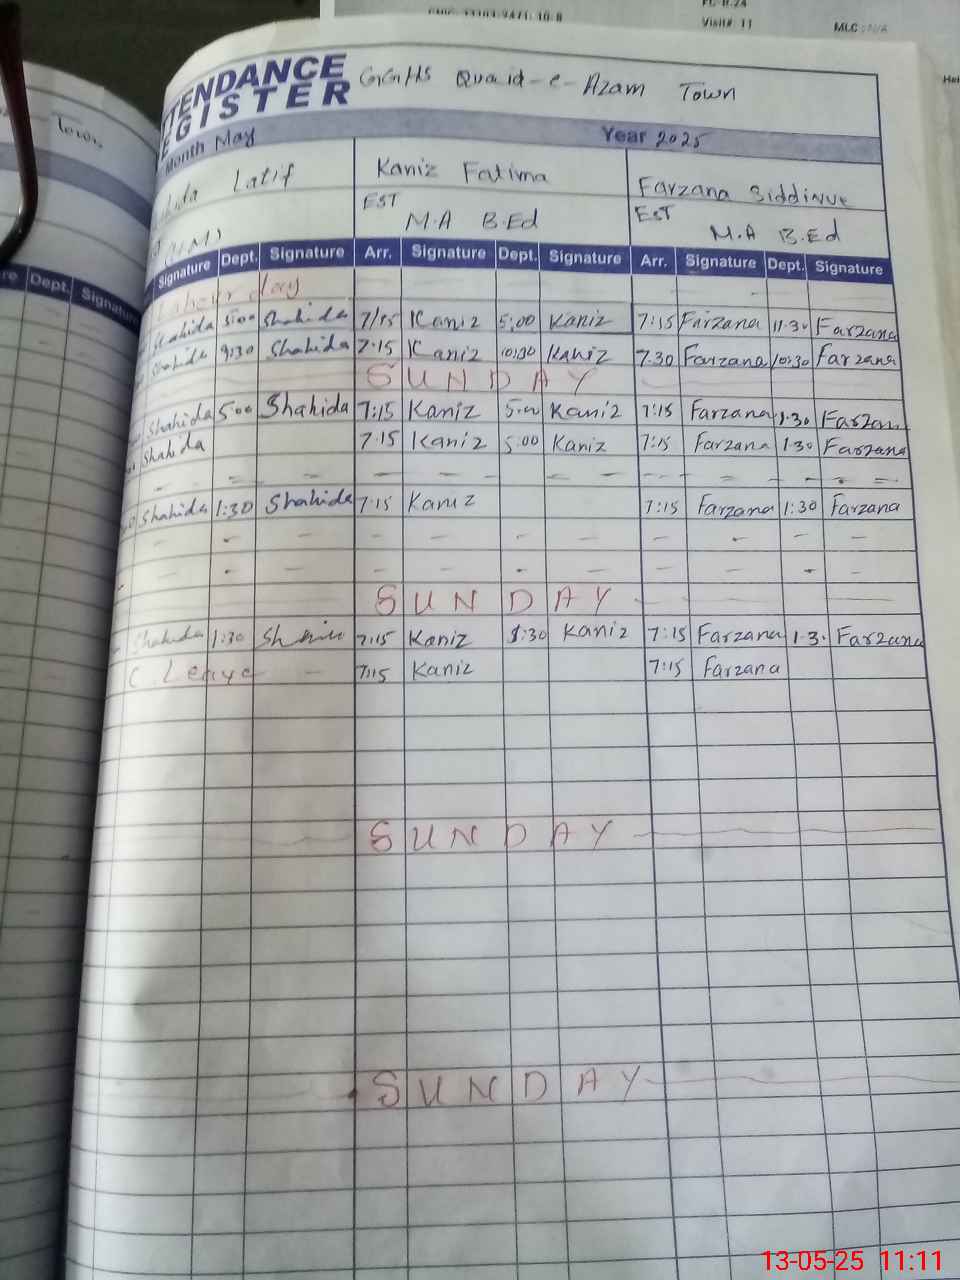 Visit#: 11
MLC : N/A
TENDANCE GGHS Quaid-e-Azam Town
EGISTER
Month May Year 2025
Latif Kaniz Fatima Farzana Siddique
EST EST
M.A B.Ed M.A B.Ed
Signature Dept. Signature Arr. Signature Dept. Signature Arr. Signature Dept. Signature
Dept. Signature
Labour day
Shahida 5:00 Shahida 7:15 Kaniz 5:00 Kaniz 7:15 Farzana 11.30 Farzana
Shahida 9:30 Shahida 7.15 Kaniz 10:30 Kaniz 7.30 Farzana 10:30 Farzana
SUNDAY
Shahida 5:00 Shahida 7:15 Kaniz 5:00 Kaniz 7:15 Farzana 1.30 Farzan
Shahida 7.15 Kaniz 5:00 Kaniz 7:15 Farzana 1.30 Farzana
Shahida 1:30 Shahida 7:15 Kaniz 7:15 Farzana 1:30 Farzana
SUNDAY
Shahida 1:30 7:15 Kaniz 1:30 Kaniz 7:15 Farzana 1.3. Farzana
C. Leave 7:15 Kaniz 7:15 Farzana
SUNDAY
SUNDAY
13-05-25 11:11